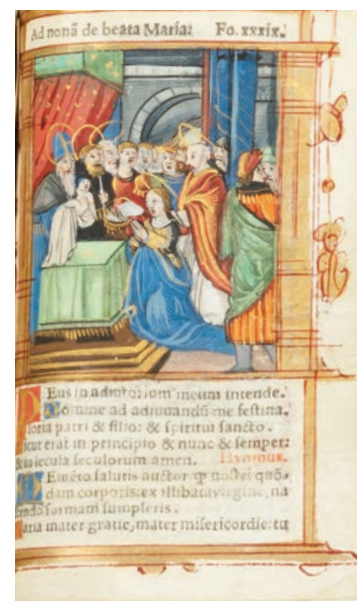 Ad nonã de beata Maria: Fo. xxxix.
Deus in adiutorium meum intende.
Domine ad adiuuandũ me festina.
loria patri & filio: & spiritui sancto.
icut erat in principio & nunc & semper:
& in secula seculorum amen. Hymnus.
Memẽto salutis auctor qꝫ nostri quõ-
dam corporis: ex illibata virgine, na
scendo formam sumpseris.
Maria mater gratie, mater misericordie: tu